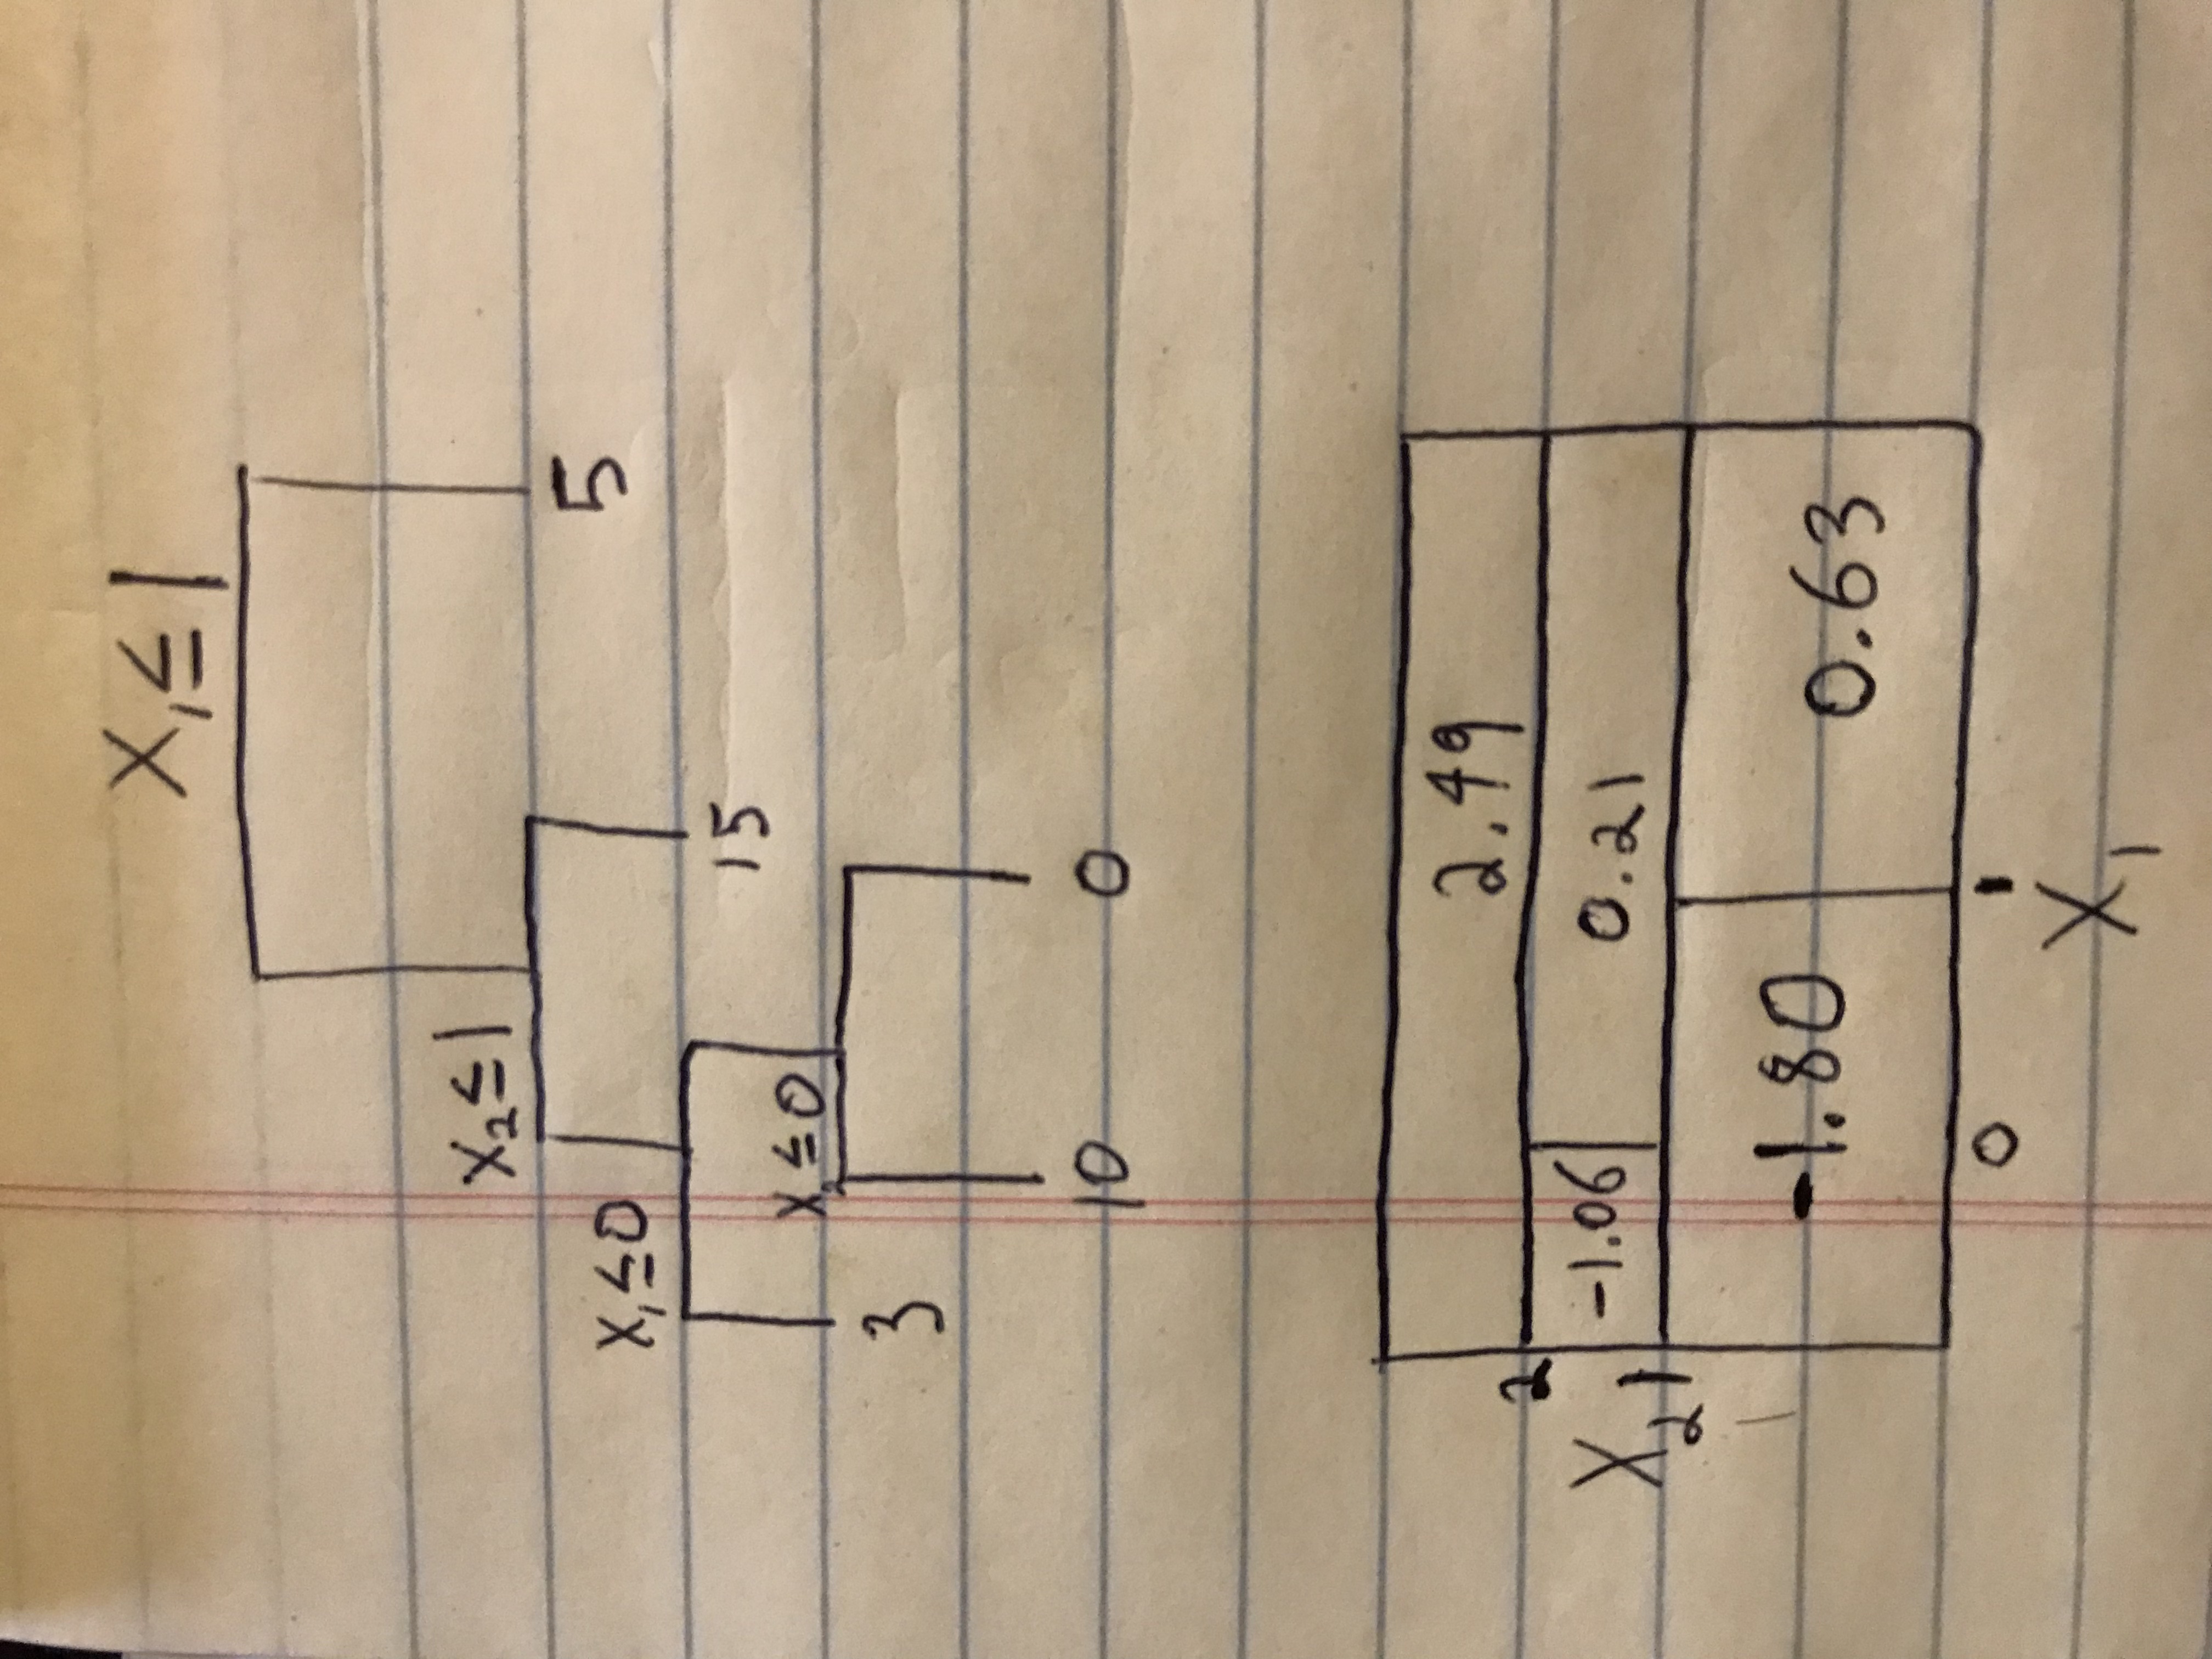 X₁ ≤ 1
X₂ ≤ 1
5
X₁ ≤ 0
15
X₂ ≤ 0
3
10 0
2.49
2
-1.06 0.21
X₂ 1
-1.80 0.63
0 1
X₁